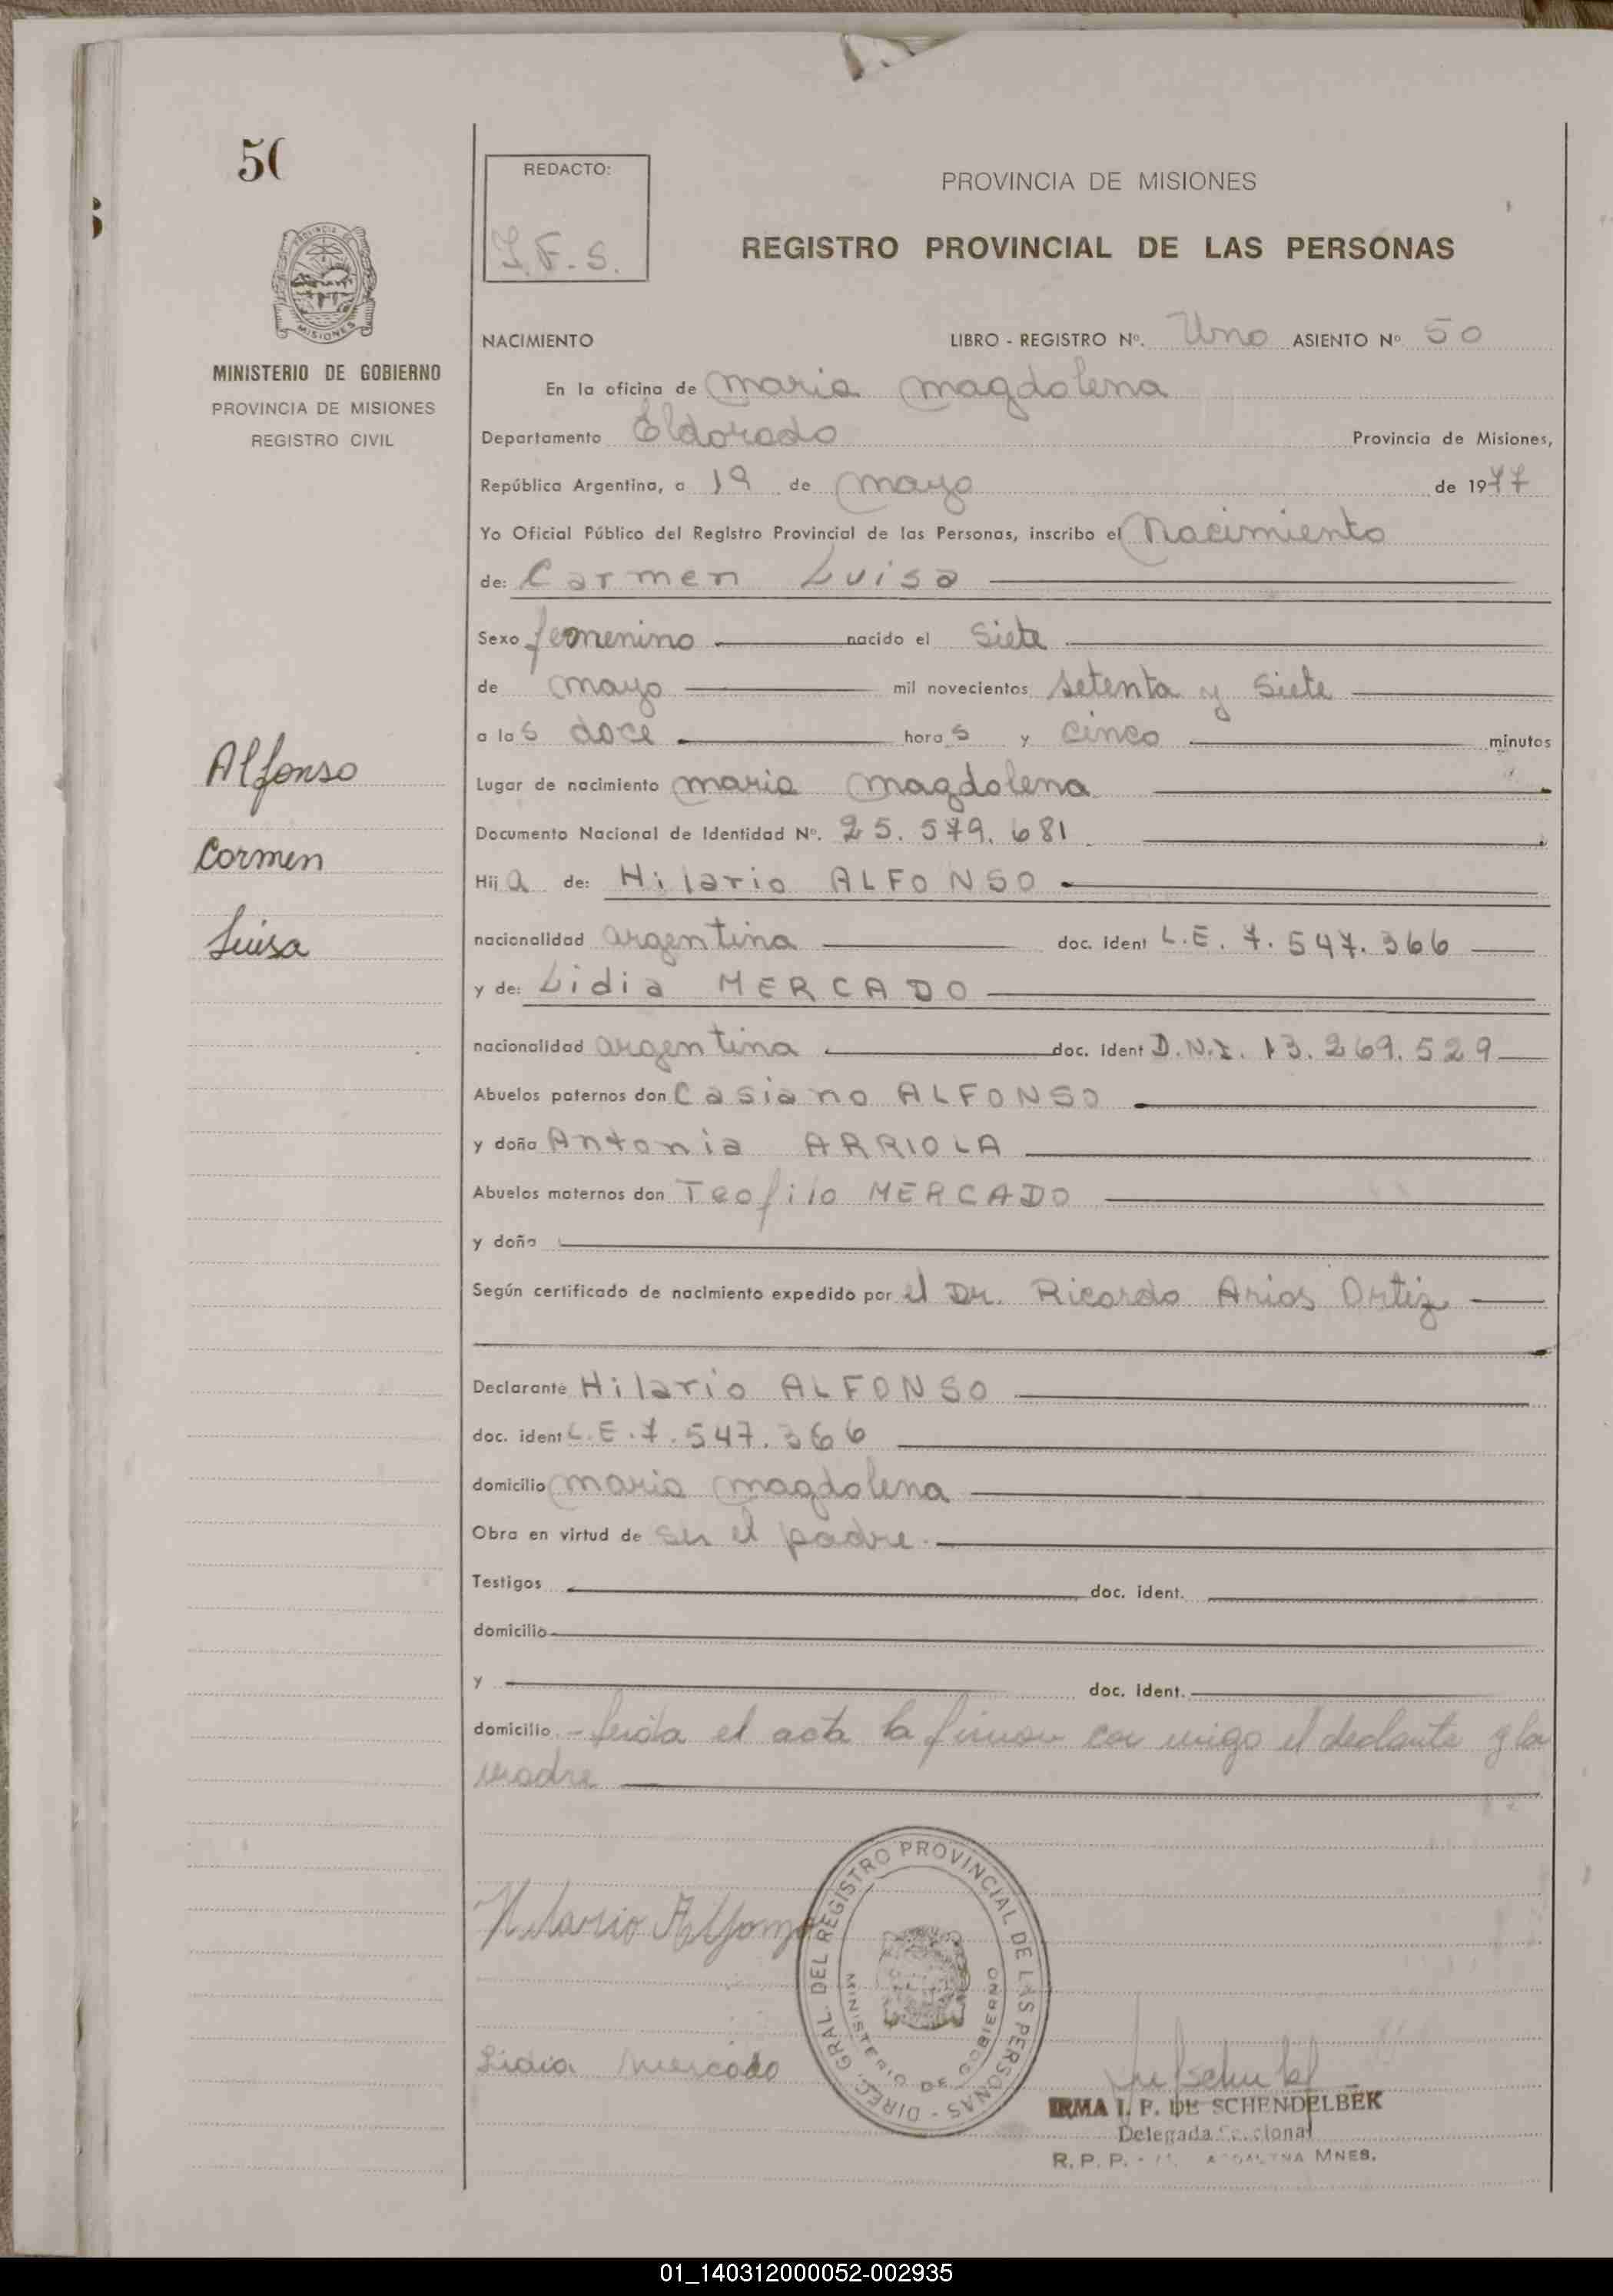 50
REDACTO:
I.F.S.
PROVINCIA DE MISIONES
REGISTRO PROVINCIAL DE LAS PERSONAS
PROVINCIA DE
MISIONES
MINISTERIO DE GOBIERNO
PROVINCIA DE MISIONES
REGISTRO CIVIL
NACIMIENTO LIBRO - REGISTRO Nº. Uno ASIENTO Nº 50
En la oficina de Maria Magdalena
Departamento Eldorado Provincia de Misiones,
República Argentina, a 19 de Mayo de 1977
Yo Oficial Público del Registro Provincial de las Personas, inscribo el Nacimiento
de: Carmen Luisa
Sexo femenino nacido el Siete
de Mayo mil novecientos setenta y Siete
a las doce horas y cinco minutos
Lugar de nacimiento Maria Magdalena
Documento Nacional de Identidad Nº. 25.579.681
Hija de: Hilario ALFONSO
nacionalidad argentina doc. ident L.E. 7.547.366
y de: Lidia MERCADO
nacionalidad argentina doc. ident D.N.I. 13.269.529
Abuelos paternos don Casiano ALFONSO
y doña Antonia ARRIOLA
Abuelos maternos don Teofilo MERCADO
y doña
Según certificado de nacimiento expedido por el Dr. Ricardo Arias Ortiz
Declarante Hilario ALFONSO
doc. ident L.E. 7.547.366
domicilio Maria Magdalena
Obra en virtud de ser el padre.
Testigos doc. ident.
domicilio
y doc. ident.
domicilio - Leida el acta la firman con migo el declante y la
madre
Alfonso
Carmen
Luisa
Hilario Alfonso
Lidia Mercado
DIREC. GRAL. DEL REGISTRO PROVINCIAL DE LAS PERSONAS -
MINISTERIO DE GOBIERNO
IRMA I. F. DE SCHENDELBEK
Delegada Seccional
R. P. P. - MNES.
01_140312000052-002935